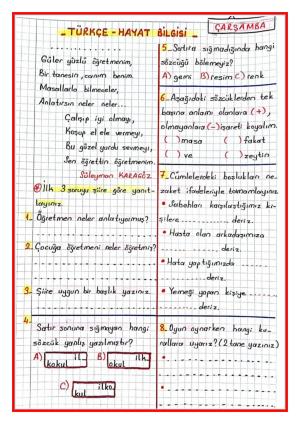 ÇARŞAMBA
TÜRKÇE - HAYAT BİLGİSİ
Güler yüzlü öğretmenim,
Bir tanesin, canım benim.
Masallarla bilmeceler,
Anlatırsın neler neler...
Çalışıp iyi olmayı,
Koşup el ele vermeyi,
Bu güzel yurdu sevmeyi,
Sen öğrettin öğretmenim.
Süleyman KARAGÖZ
İlk 3 soruyu şiire göre yanıt-
layınız.
1- Öğretmen neler anlatıyormuş?
2- Çocuğa öğretmeni neler öğretmiş?
3- Şiire uygun bir başlık yazınız.
4-
Satır sonuna sığmayan hangi
sözcük yanlış yazılmıştır?
A) il
kokul
B) ilk
okul
C) ilko
kul
5- Satıra sığmadığında hangi
sözcüğü bölemeyiz?
A) genç B) resim C) renk
6- Aşağıdaki sözcüklerden tek
başına anlamı olanlara (+),
olmayanlara (-) işareti koyalım.
( ) masa ( ) fakat
( ) ve ( ) zeytin
7- Cümlelerdeki boşlukları ne-
zaket ifadeleriyle tamamlayınız.
• Sabahları karşılaştığımız ki-
şilere .............. deriz.
• Hasta olan arkadaşımıza
.............. deriz.
• Hata yaptığımızda
.............. deriz.
• Yemeği yapan kişiye .....
.............. deriz.
8- Oyun oynarken hangi ku-
rallara uyarız? (2 tane yazınız)